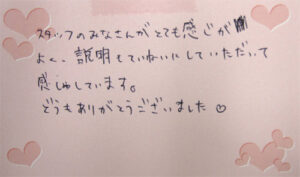 スタッフのみなさんがとても感じが
よく、説明もていねいにしていただいて
感しゃしています。
どうもありがとうございました♡